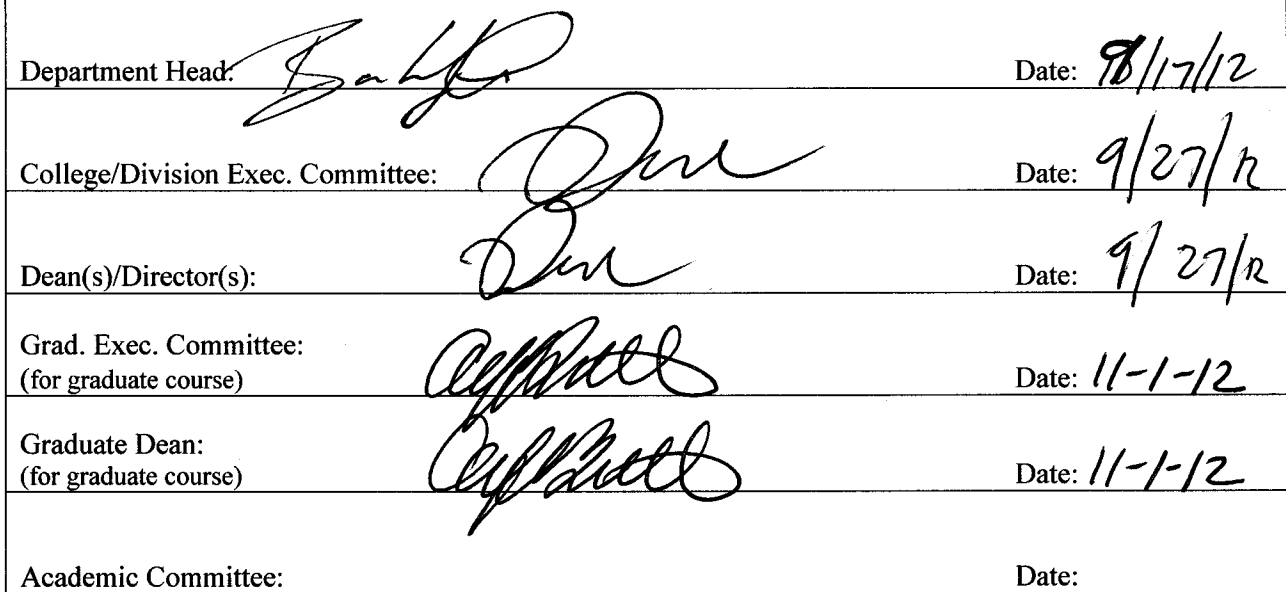 Department Head: Date: 9/17/12
College/Division Exec. Committee: Date: 9/27/12
Dean(s)/Director(s): Date: 9/27/12
Grad. Exec. Committee: Date: 11-1-12
(for graduate course)
Graduate Dean: Date: 11-1-12
(for graduate course)
Academic Committee: Date: